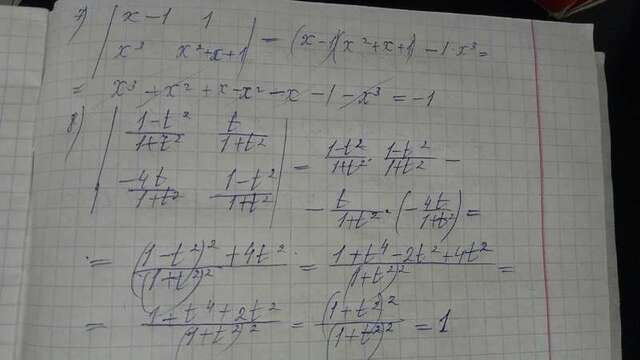 7) | x-1 1 ; x³ x²+x+1 | = (x-1)(x²+x+1) - 1·x³ =
= x³ + x² + x - x² - x - 1 - x³ = -1
8) | (1-t²)/(1+t²) t/(1+t²) ; -4t/(1+t²) (1-t²)/(1+t²) | = (1-t²)/(1+t²) · (1-t²)/(1+t²) -
- t/(1+t²) · (-4t/(1+t²)) =
= ((1-t²)² + 4t²)/(1+t²)² = (1+t⁴-2t²+4t²)/(1+t²)² =
= (1+t⁴+2t²)/(1+t²)² = (1+t²)²/(1+t²)² = 1